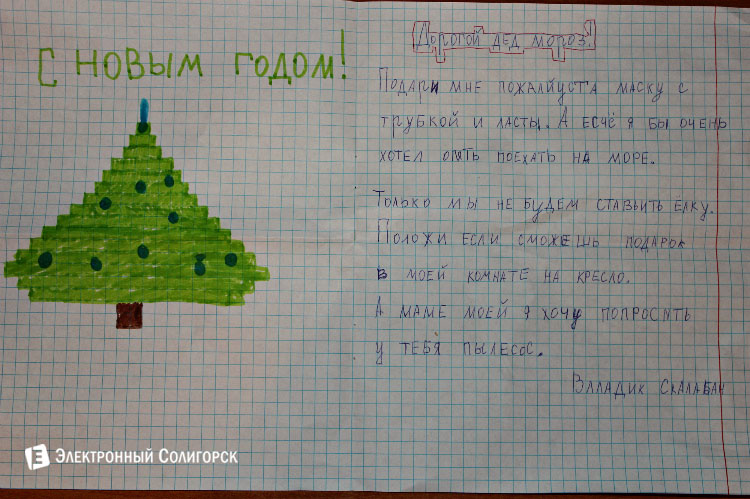 С НОВЫМ ГОДОМ!
ДОРОГОЙ ДЕД МОРОЗ.
ПОДАРИ МНЕ ПОЖАЛУЙСТА МАСКУ С
ТРУБКОЙ И ЛАСТЫ. А ЕСЧЁ Я БЫ ОЧЕНЬ
ХОТЕЛ ОПЯТЬ ПОЕХАТЬ НА МОРЕ.
ТОЛЬКО МЫ НЕ БУДЕМ СТАВЬИТЬ ЁЛКУ.
ПОЛОЖИ ЕСЛИ СМОЖЕШЬ ПОДАРОК
В МОЕЙ КОМНАТЕ НА КРЕСЛО.
А МАМЕ МОЕЙ Я ХОЧУ ПОПРОСИТЬ
У ТЕБЯ ПЫЛЕСОС.
ВЛАДИК СКАЛАБАН
Электронный Солигорск